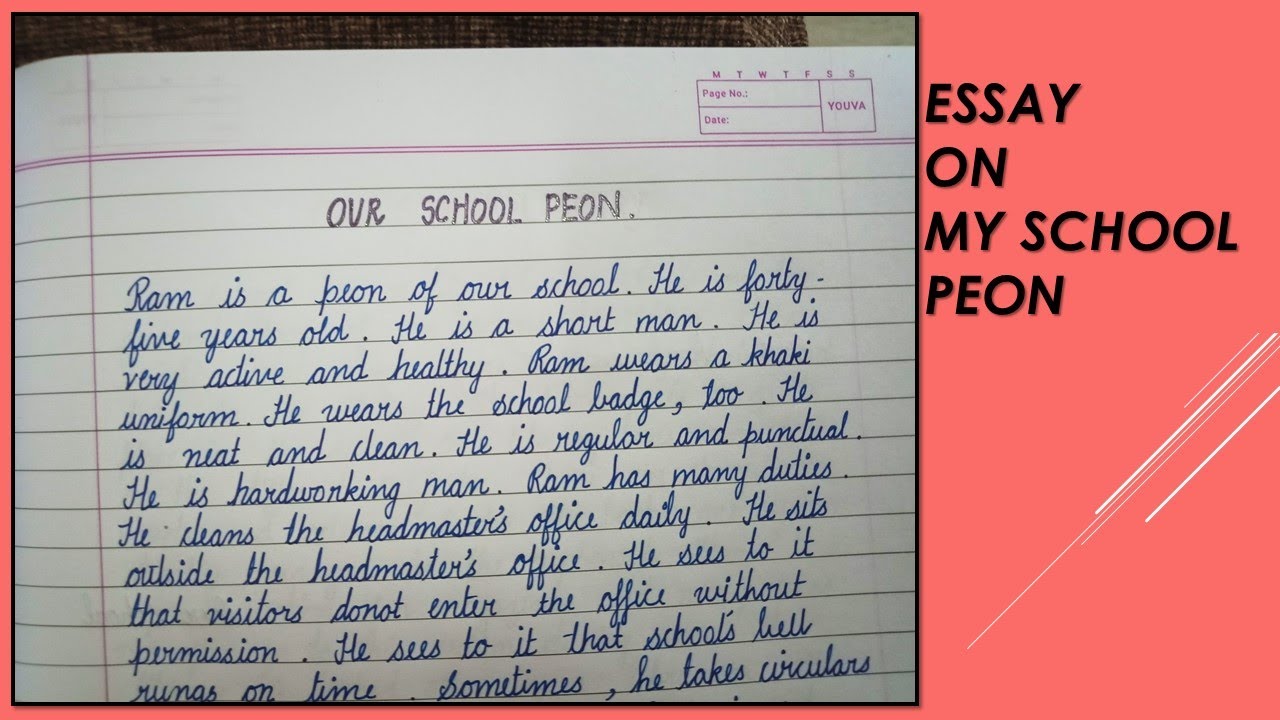 M T W T F S S
Page No.:
YOUVA
Date:
OUR SCHOOL PEON.
Ram is a peon of our school. He is forty-
five years old. He is a short man. He is
very active and healthy. Ram wears a khaki
uniform. He wears the school badge, too. He
is neat and clean. He is regular and punctual.
He is hardworking man. Ram has many duties.
He cleans the headmaster's office daily. He sits
outside the headmaster's office. He sees to it
that visitors donot enter the office without
permission. He sees to it that school's bell
rungs on time. Sometimes, he takes circulars
ESSAY
ON
MY SCHOOL
PEON